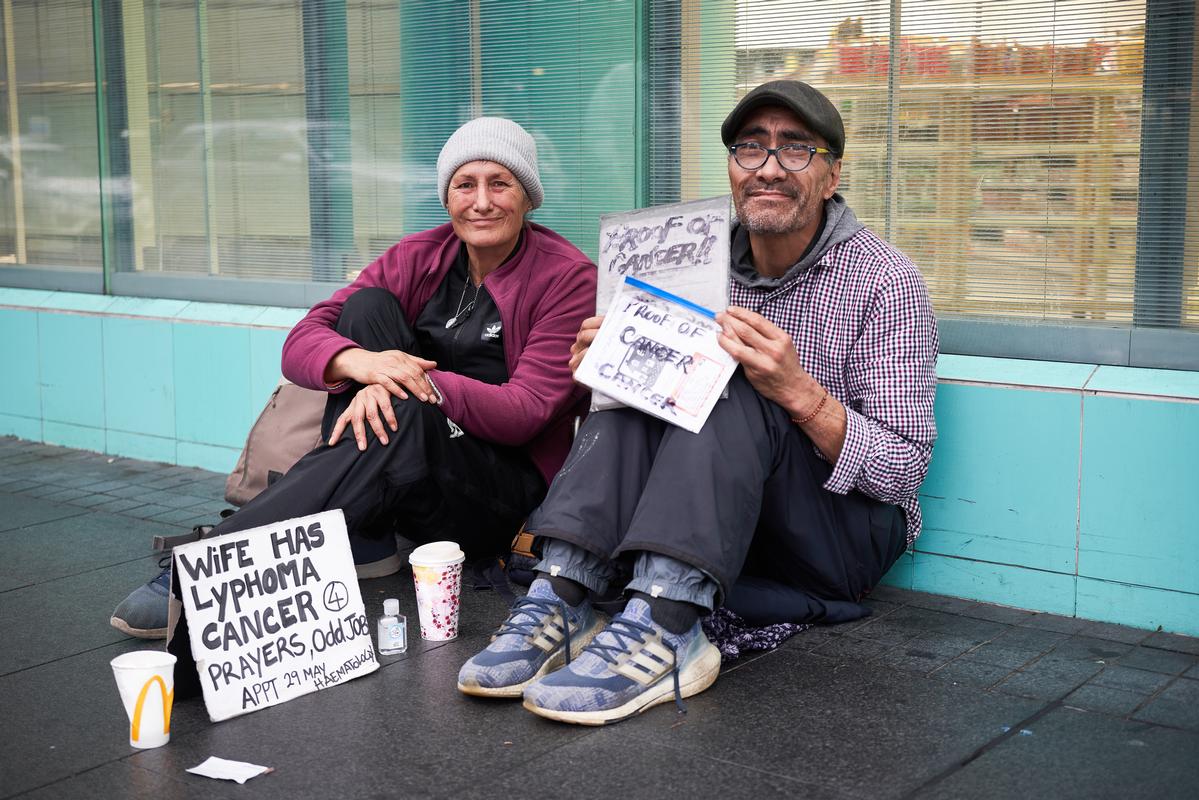 PROOF OF
CANCER!!
PROOF OF
CANCER
CANCER
adidas
WiFE HAS
LYPHOMA
CANCER ④
PRAYERS, Odd JOB
APPT 29 MAY
HAEMATOLOGY